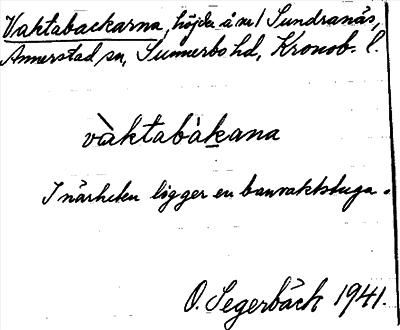 Vaktabackarna, höjder å nr 1 Sundranäs,
Annerstad sn, Sunnerbo hd, Kronob. l.
vàktabàkana
I närheten ligger en banvaktstuga.
O. Segerbäck 1941.